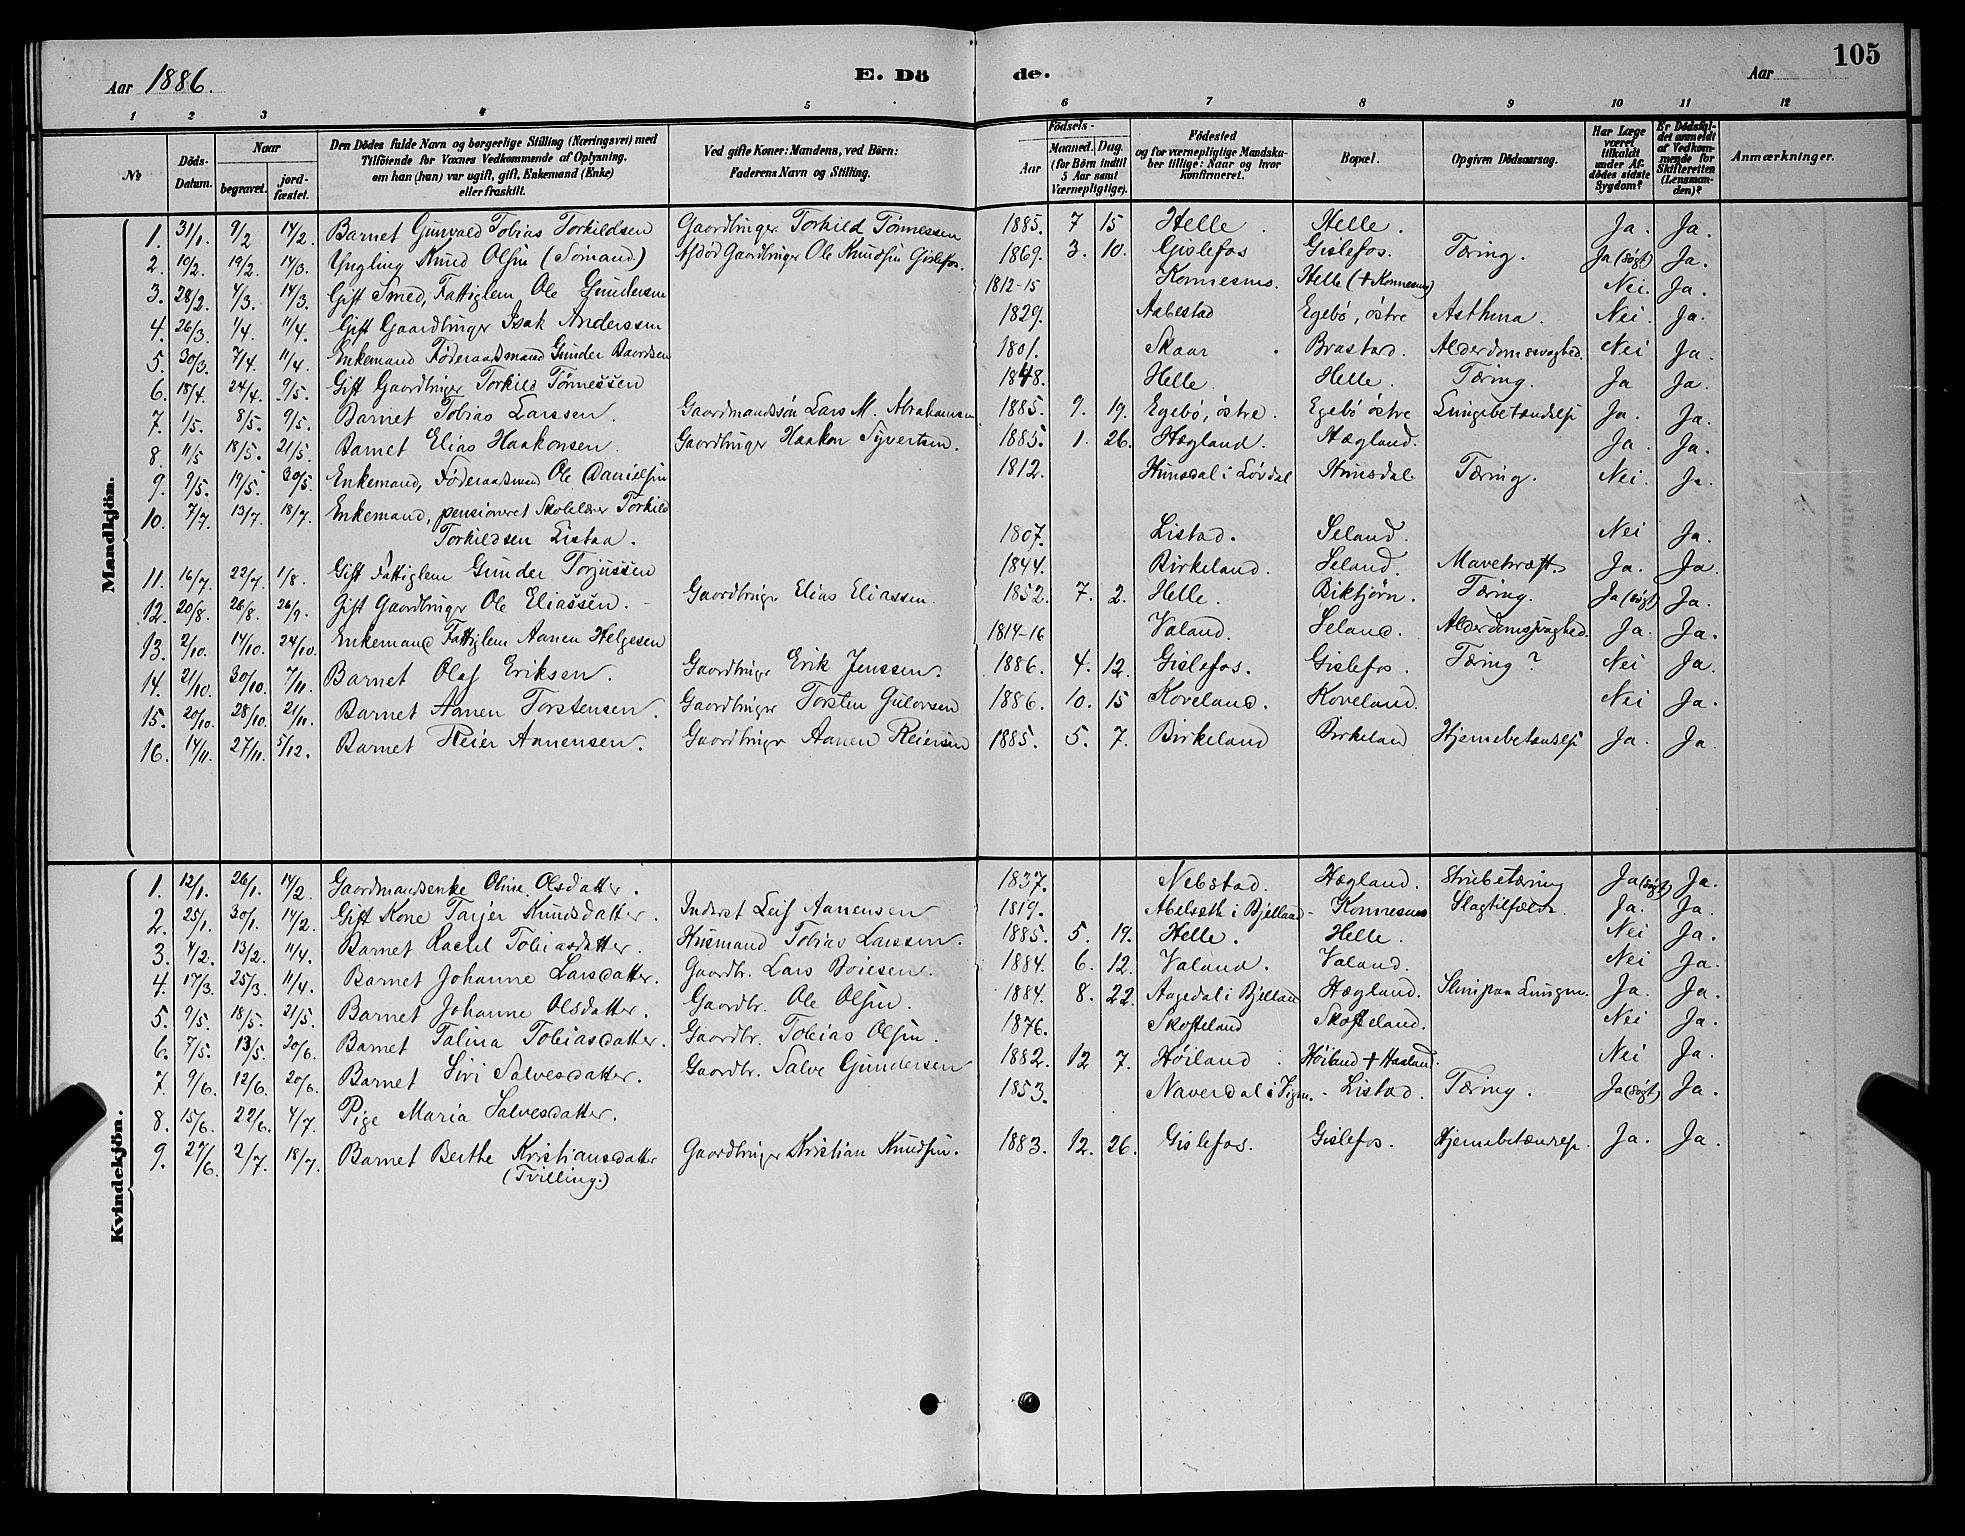 105
Aar 1886.
E. Dö
de.
Aar
1 2 3 4 5 6 7 8 9 10 11 12
No
Döds-Datum.
Naar
begravet.
jord-fæstet.
Den Dödes fulde Navn og borgerlige Stilling (Næringsvei) med
Tilföiende for Voxnes Vedkommende af Oplysning.
om han (hun) var ugift, gift, Enkemand (Enke)
eller fraskilt.
Ved gifte Koner: Mandens, ved Börn:
Faderens Navn og Stilling.
Födsels-
Aar
Maaned. Dag.
(for Börn indtil 5 Aar samt Værnepligtige).
Födested
og for værnepligtige Mandska-
ber tillige: Naar og hvor
konfirmeret.
Bopæl.
Opgiven Dödsaarsag.
Har Læge været tilkaldt under Afdödes sidste Sygdom?
Er Dödsfaldet anmeldt af Vedkommende for Skifteretten (Lensmanden)?
Anmærkninger.
Mandkjön.
1. 31/1. 9/2 14/2. Barnet Gunvald Tobias Torkildsen Gaardbruger Torkild Tønnessen 1885. 7 15 Helle. Helle. Ja. Ja.
2. 10/2. 19/2. 14/3. Yngling Knud Olsen (Sømand) Afdød Gaardbruger Ole Knudsen Gislefos. 1869. 3. 10. Gislefos Gislefos. Tæring. Ja (søgt) Ja.
3. 28/2. 4/3. 14/3. Gift Smed, Fattiglem Ole Gundersen 1812-15 Konnesmo. Helle (+ Konnesmo) Nei. Ja.
4. 26/3. 1/4. 11/4. Gift Gaardbruger Isak Anderssen 1829. Aabestad Egebø, østre Asthma. Nei. Ja.
5. 30/3. 7/4. 11/4. Enkemand Føderaadsmand Gunder Baardsen 1801. Skaar Brastad. Alderdomssvaghed. Nei Ja.
6. 18/4. 24/4. 9/5. Gift Gaardbruger Torkild Tønnessen 1848. Helle. Helle. Tæring. Ja Ja.
7. 1/5. 8/5. 9/5. Barnet Tobias Larssen. Gaardmandssøn Lars M. Abrahamsen 1885. 9. 19. Egebø, østre. Egebø østre Lungebetændelse Ja. Ja.
8. 11/5 18/5. 21/5. Barnet Elias Haakonsen. Gaardbruger Haakon Syvertsen. 1885. 1. 26. Hægland. Hægland. Ja. Ja.
9. 9/5. 19/5. 30/5. Enkemand, Føderaadsmand Ole Danielsen 1812. Hunsdal i Løvdal Hunsdal Tæring. Nei. Ja.
10. 7/7. 13/7. 18/7. Enkemand, pensioneret Skolelærer Torkild
Torkildsen Listaa. 1807. Listad. Seland. Nei Ja.
11. 16/7. 22/7. 1/8. Gift Fattiglem Gunder Torjussen 1844. Birkeland. Seland. Mavekræft. Ja. Ja.
12. 20/8. 26/8. 26/9. Gift Gaardbruger Ole Eliassen. Gaardbruger Elias Eliassen. 1852. 7. 2. Helle. Biktjørn. Tæring. Ja (søgt) Ja.
13. 2/10. 14/10. 24/10. Enkemand Fattiglem Aanen Helgesen 1814-16 Valand. Seland. Alderdomssvaghed. Ja. Ja.
14. 21/10. 30/10. 7/11. Barnet Olaf Eriksen. Gaardbruger Erik Jenssen. 1886. 4. 12. Gislefos. Gislefos. Tæring? Nei Ja.
15. 20/10. 28/10. 21/11. Barnet Aanen Torstensen. Gaardbruger Torsten Gulovsen 1886. 10. 15 Koveland. Koveland. Nei Ja.
16. 14/11. 27/11. 5/12. Barnet Reier Aanensen. Gaardbruger Aanen Reiersen 1885. 5. 7. Birkeland Birkeland Hjernebetændelse Ja. Ja.
Kvindekjön.
1. 12/1. 26/1. 14/2. Gaardmandsenke Oline Olsdatter. 1837. Nebstad. Hægland. Strubetæring Ja (søgt) Ja.
2. 25/1. 30/1. 14/2. Gift Kone Tarjer Knudsdatter. Inderst Leif Aanensen 1819. Abelseth i Bjelland - Konnesmo Slagtilfælde. Ja. Ja.
3. 4/2. 13/2. 11/4. Barnet Rachel Tobiasdatter. Husmand Tobias Larssen. 1885. 5. 19. Helle. Helle. Nei Ja.
4. 17/3. 25/3. 11/4. Barnet Johanne Larsdatter. Gaardbr. Lars Boiesen. 1884. 6. 12. Valand. Valand. Nei Ja.
5. 9/5. 18/5. 21/5. Barnet Johanne Olsdatter. Gaardbr. Ole Olsen. 1884. 8. 22. Aagedal i Bjelland Hægland. Slim paa Lungen. Ja. Ja.
6. 7/5. 13/5. 20/6. Barnet Talina Tobiasdatter. Gaardbr. Tobias Olsen. 1876. Skofteland Skofteland. Nei Ja.
7. 9/6. 12/6. 20/6. Barnet Siri Salvesdatter. Gaardbr. Salve Gundersen 1882. 12 7. Høiland Høiland + Hasland. Nei Ja.
8. 15/6. 22/6. 4/7. Pige Maria Salvesdatter. 1853. Naverdal i Vigm. - Listad. Tæring. Ja (søgt) Ja.
9. 27/6. 2/7. 18/7. Barnet Berthe Kristiansdatter Gaardbruger Kristian Knudsen. 1883. 12. 26. Gislefos. Gislefos. Hjernebetændelse. Ja. Ja.
(Tvilling.)